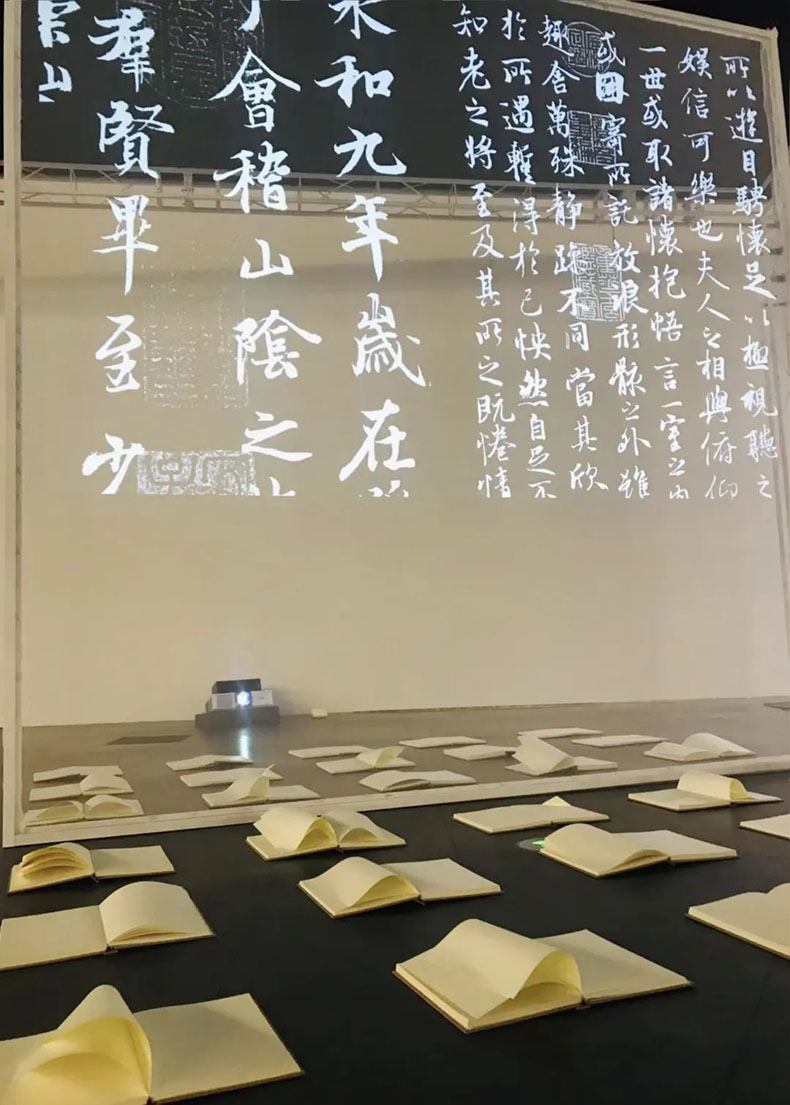 所以遊目騁懷足以極視聽之
娛信可樂也夫人之相與俯仰
一世或取諸懷抱悟言一室之內
或因寄所託放浪形骸之外雖
趣舍萬殊靜躁不同當其欣
於所遇暫得於己怏然自足不
知老之將至及其所之既惓情
永和九年歲在
于會稽山陰之
羣賢畢至少
崇山